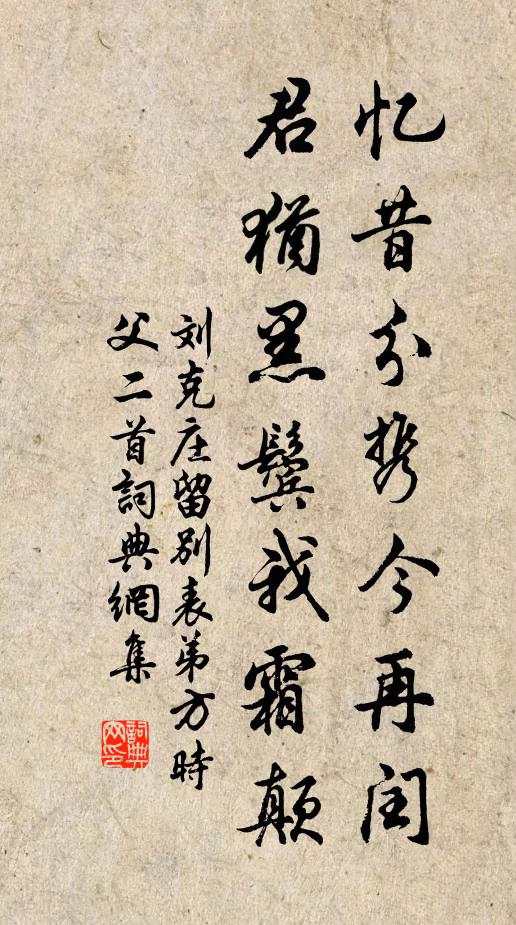 忆昔分携今再闰
君犹黑鬓我霜颠
刘克庄留别表弟方时
父二首詞典網集
詞典
网印